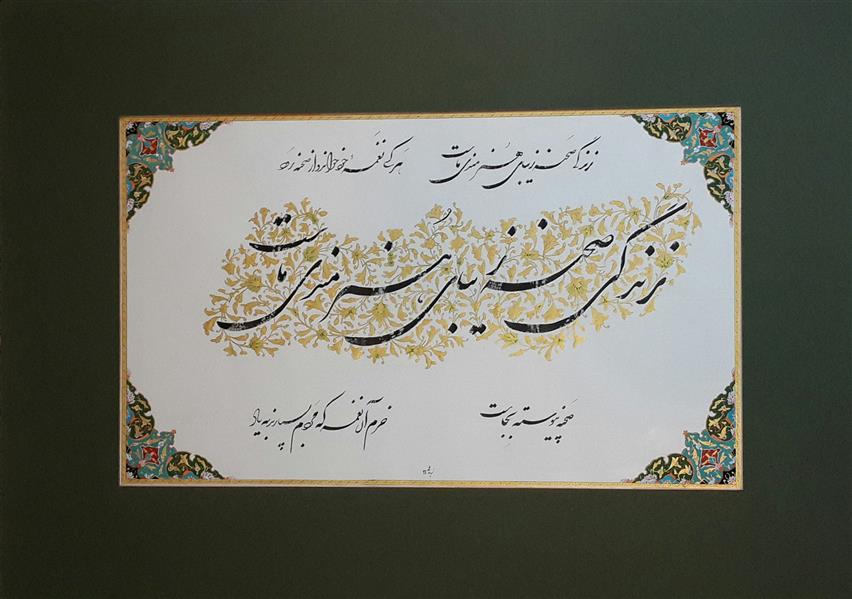 زندگی صحنه زیبای هنرمندی ماست هر کسی نغمه خود خواند و از صحنه رود
زندگی صحنه زیبای هنرمندی ماست
صحنه پیوسته بجاست خرم آن نغمه که مردم بسپارند به یاد